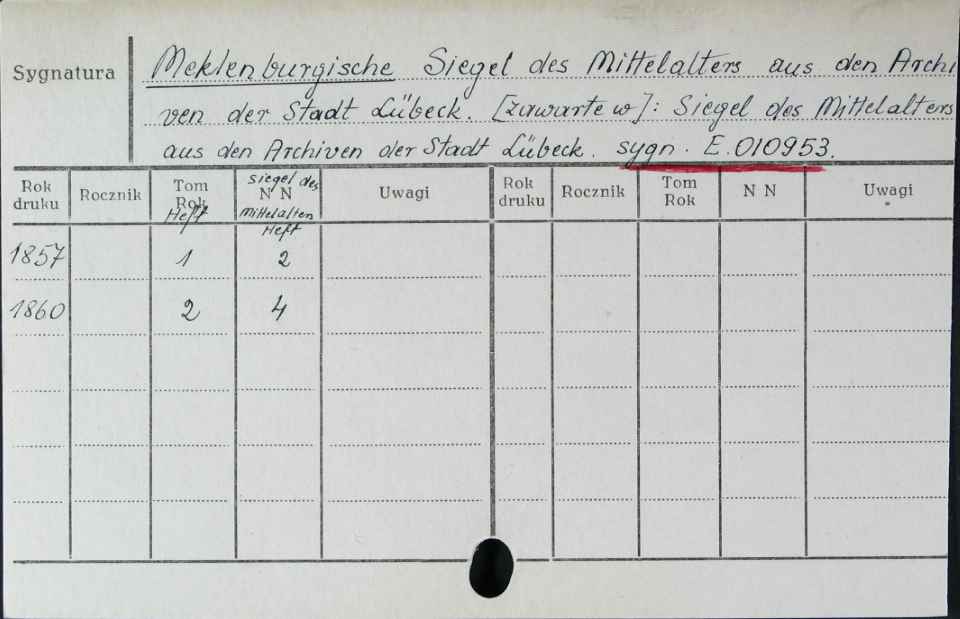 Sygnatura
Meklenburgische Siegel des Mittelalters aus den Archi
ven der Stadt Lübeck. [zawarte w]: Siegel des Mittelalters
aus den Archiven der Stadt Lübeck. sygn. E.010953.
Rok druku Rocznik Tom Rok Heft Siegel des N N Mittelalters Heft Uwagi Rok druku Rocznik Tom Rok N N Uwagi
1857 1 2
1860 2 4